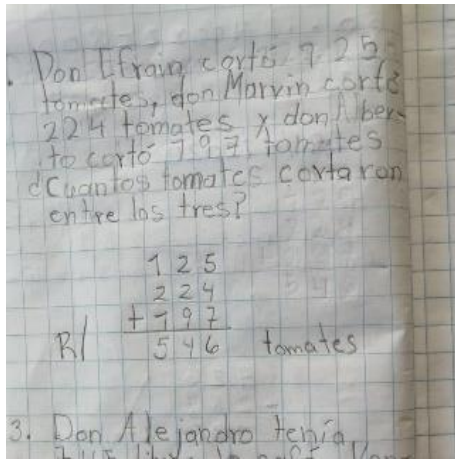 . Don Efrain cortó 125
tomates, don Marvin cortó
224 tomates y don Alber-
to cortó 197 tomates
¿Cuantos tomates cortaron
entre los tres?
125
224
+197
R/ 546 tomates
3. Don Alejandro tenía